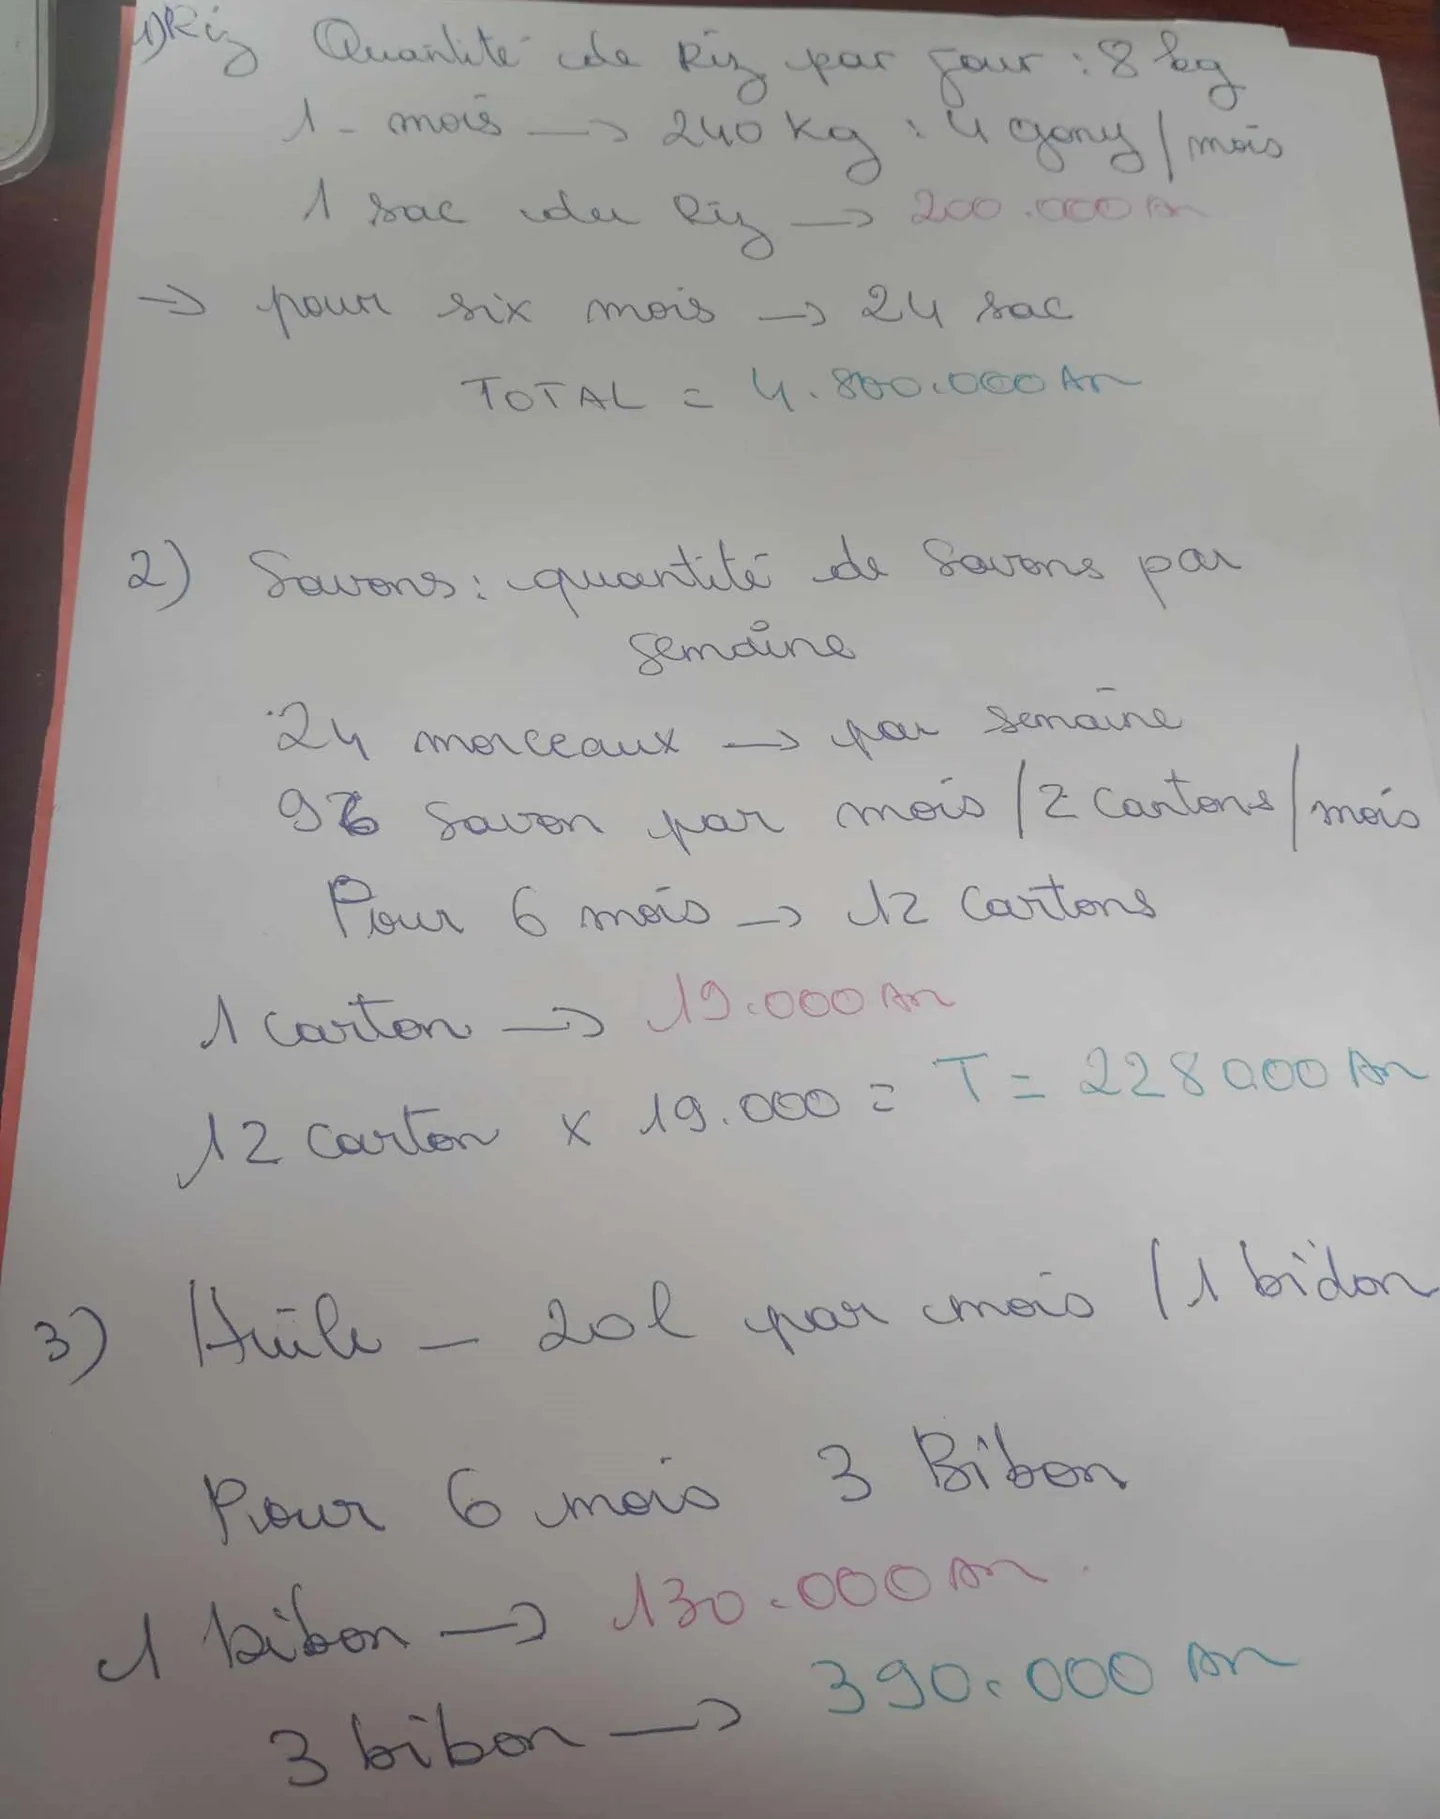 1) Riz Quantité de Riz par jour : 8 kg
1 - mois → 240 kg : 4 gony / mois
1 sac du Riz → 200.000 Ar
→ pour six mois → 24 sac
TOTAL = 4.800.000 Ar
2) Savons : quantité de Savons par
semaine
24 morceaux → par semaine
96 Savon par mois / 2 cartons / mois
Pour 6 mois → 12 Cartons
1 carton → 19.000 Ar
12 carton x 19.000 = T = 228000 Ar
3) Huile - 20l par mois / 1 bidon
Pour 6 mois 3 Bibon
1 bibon → 130.000 Ar
3 bibon → 390.000 Ar